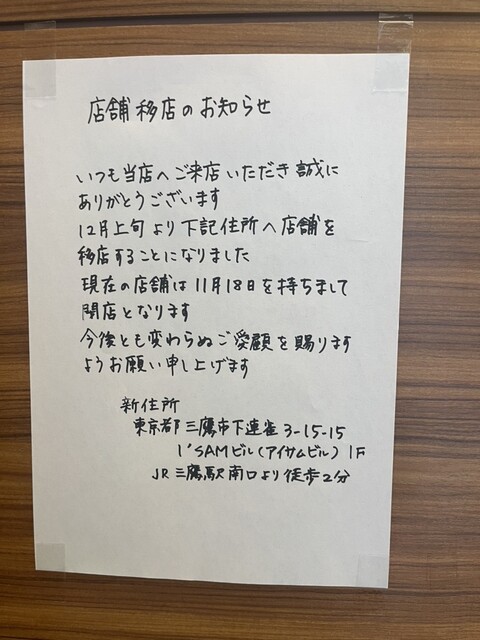 店舗移店のお知らせ
いつも当店へご来店いただき誠に
ありがとうございます
12月上旬より下記住所へ店舗を
移店することになりました
現在の店舗は11月18日を持ちまして
閉店となります
今後とも変わらぬご愛顧を賜ります
ようお願い申し上げます
新住所
東京都三鷹市下連雀3-15-15
I'SAMビル(アイサムビル) 1F
JR三鷹駅南口より徒歩2分